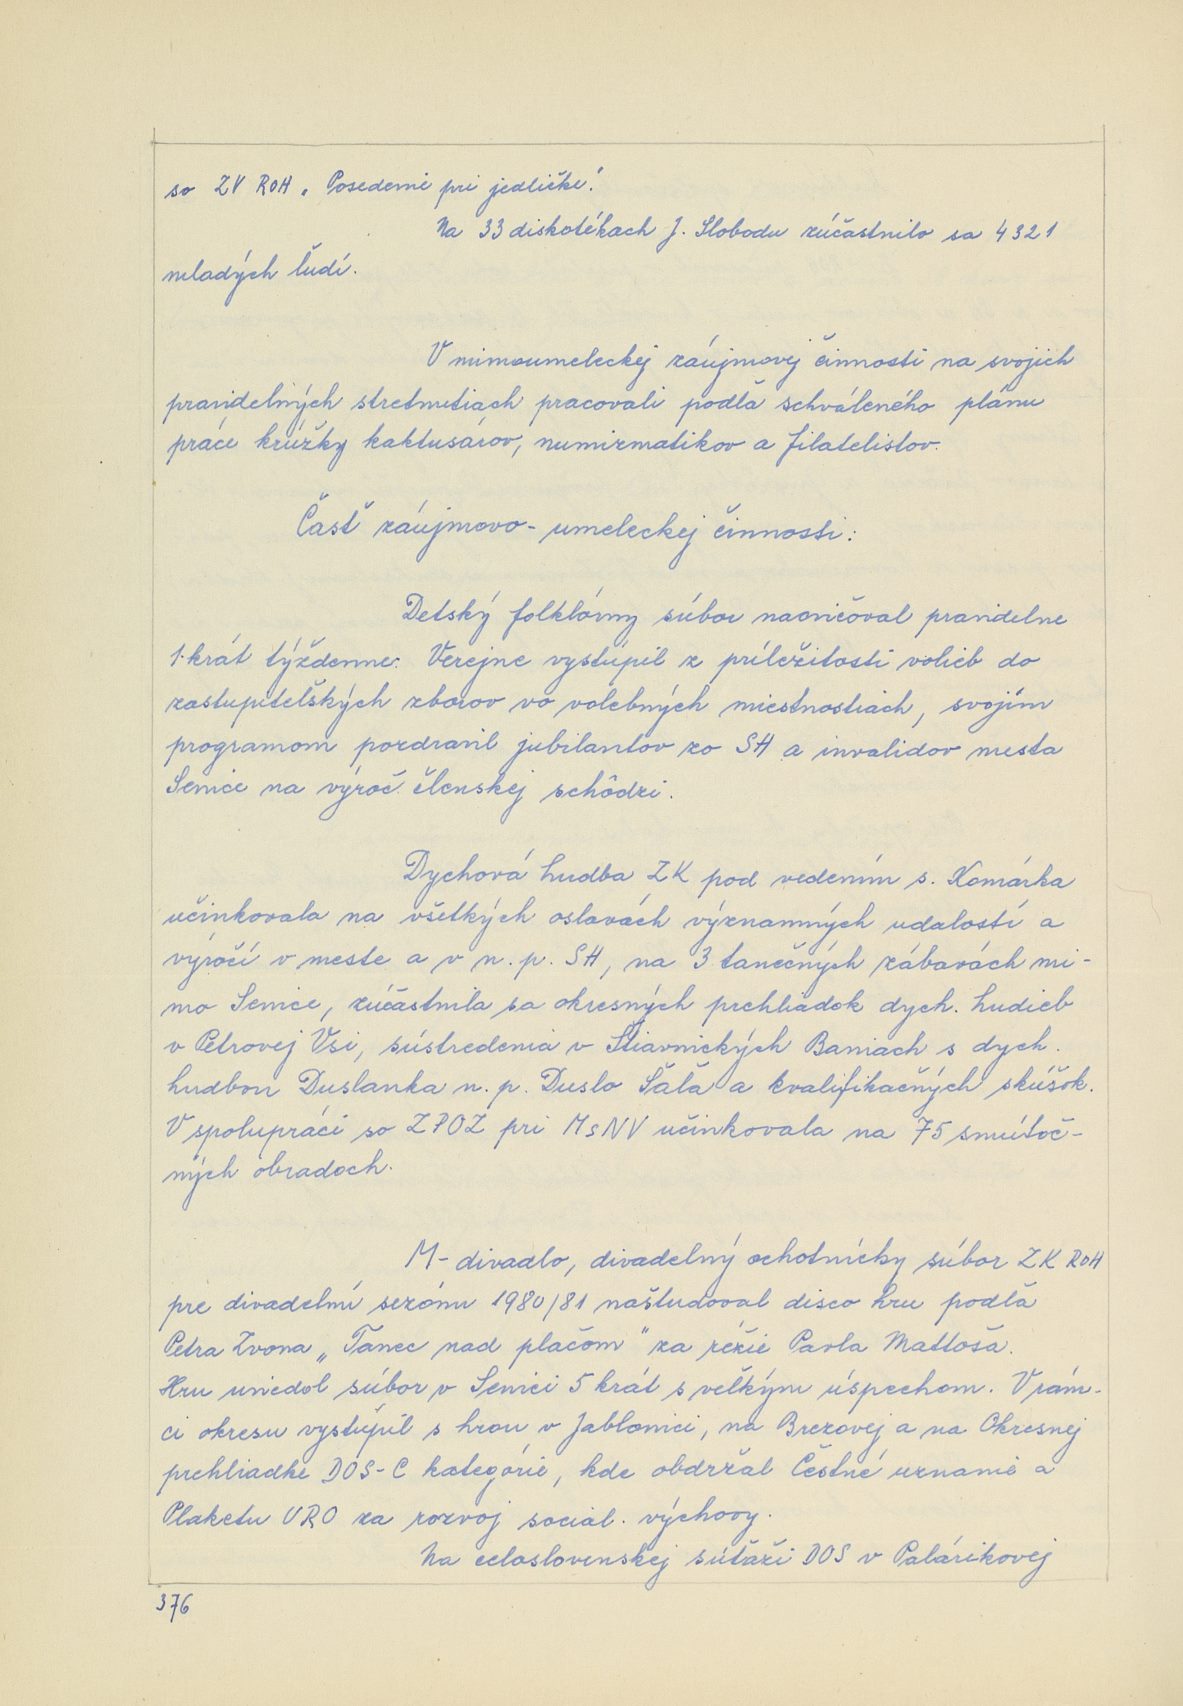 so ZV ROH „Posedenie pri jedličke."
Na 33 diskotékach J. Slobodu zúčastnilo sa 4321
mladých ľudí.
V mimoumeleckej záujmovej činnosti na svojich
pravidelných stretnutiach pracovali podľa schváleného plánu
práce krúžky kaktusárov, numizmatikov a filatelistov.
Časť záujmovo-umeleckej činnosti:
Detský folklórny súbor nacvičoval pravidelne
1.krát týždenne. Verejne vystúpil z príležitosti volieb do
zastupiteľských zborov vo volebných miestnostiach, svojím
programom pozdravil jubilantov zo SH a invalidov mesta
Senice na výroč. členskej schôdzi.
Dychová hudba ZK pod vedením s. Komárka
učinkovala na všetkých oslavách významných udalostí a
výročí v meste a v n. p. SH, na 3 tanečných zábavách mi-
mo Senice, zúčastnila sa okresných prehliadok dych. hudieb
v Petrovej Vsi, sústredenia v Štiavnických Baniach s dych.
hudbou Duslanka n. p. Duslo Šaľa a kvalifikačných skúšok.
V spolupráci so ZPOZ pri MsNV učinkovala na 75 smútoč-
ných obradoch.
M-divadlo, divadelný ochotnícky súbor ZK ROH
pre divadelnú sezónu 1980/81 naštudoval disco hru podľa
Petra Zvona „Tanec nad plačom" za réžie Pavla Mattoša.
Hru uviedol súbor v Senici 5 krát s veľkým úspechom. V rám-
ci okresu vystúpil s hrou v Jablonici, na Brezovej a na Okresnej
prehliadke DOS-C kategórie, kde obdržal Čestné uznanie a
Plaketu URO za rozvoj social. výchovy.
Na celoslovenskej súťaži DOS v Palárikovej
376